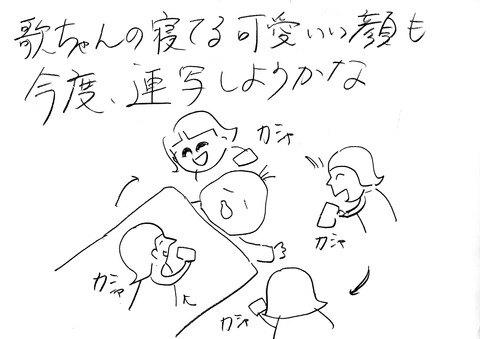 歌ちゃんの寝てる可愛いい顔も
今度、連写しようかな
カシャ
カシャ
カシャ
カシャ